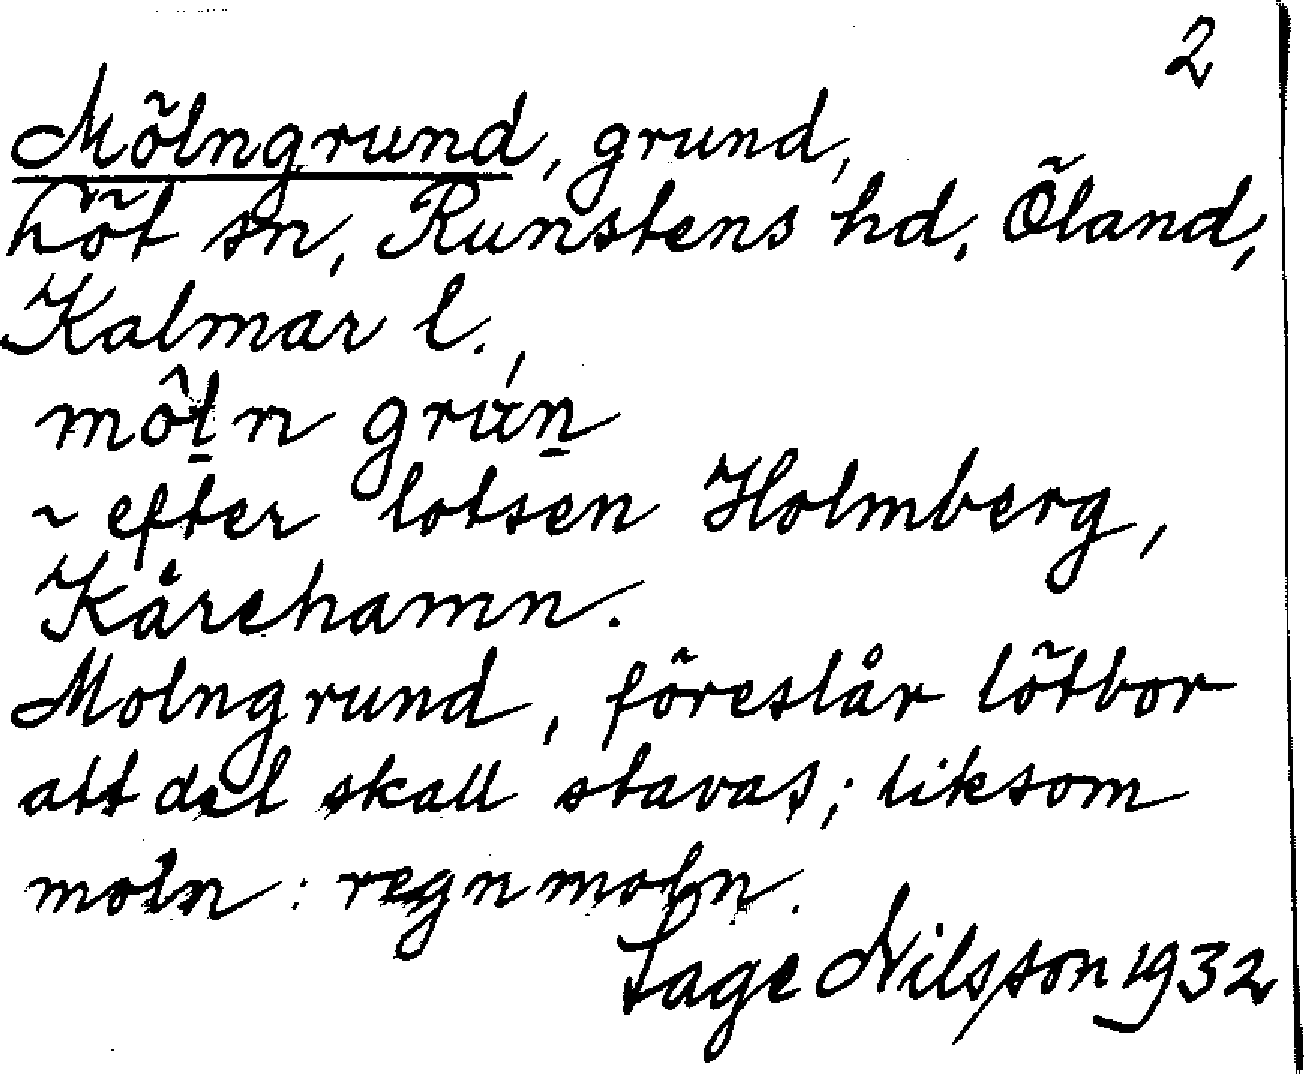 2
Mölngrund, grund,
Löt sn, Runstens hd, Öland,
Kalmar l.,
môl̠n grún̠
~ efter lotsen Holmberg,
Kårehamn.
Molngrund, föreslår lötbor
att det skall stavas; liksom
moln: regnmoln.
Tage Nilsson 1932